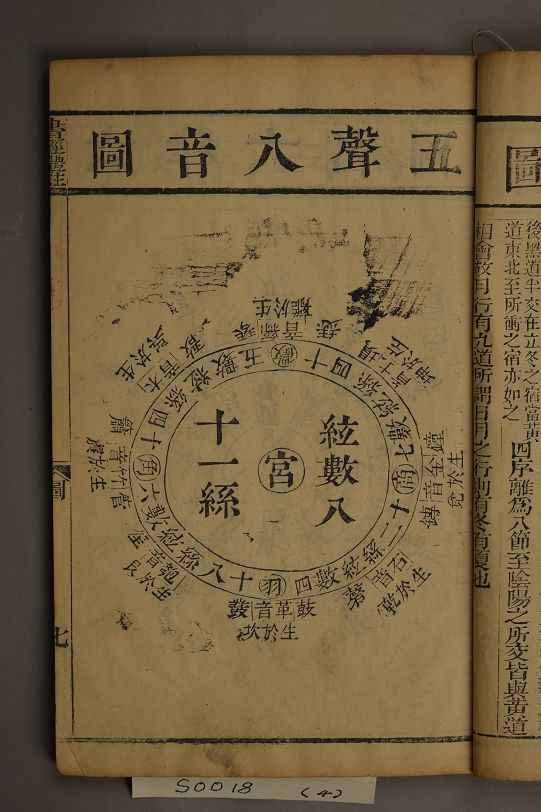 圖
後黑道半交在立冬之宿當黃
道東北至所衝之宿亦如之
四序離為八節至陰陽之所交皆與黃道
相會故月行有九道所謂日月之行則有冬有夏也
五聲八音圖
宮
絃數八
十一絲
商
絃數七十二絲
羽
絃數四十八絲
角
絃數六十四絲
徵
絃數五十四絲
鐘金音鎛
生於兌
石音磬
生於乾
鼓革音鼗
生於坎
匏音笙
生於艮
管竹音簫
生於震
木音敔
生於巽
琴絲音瑟
生於離
塤土音
生於坤
圖
七
S0018 (4)